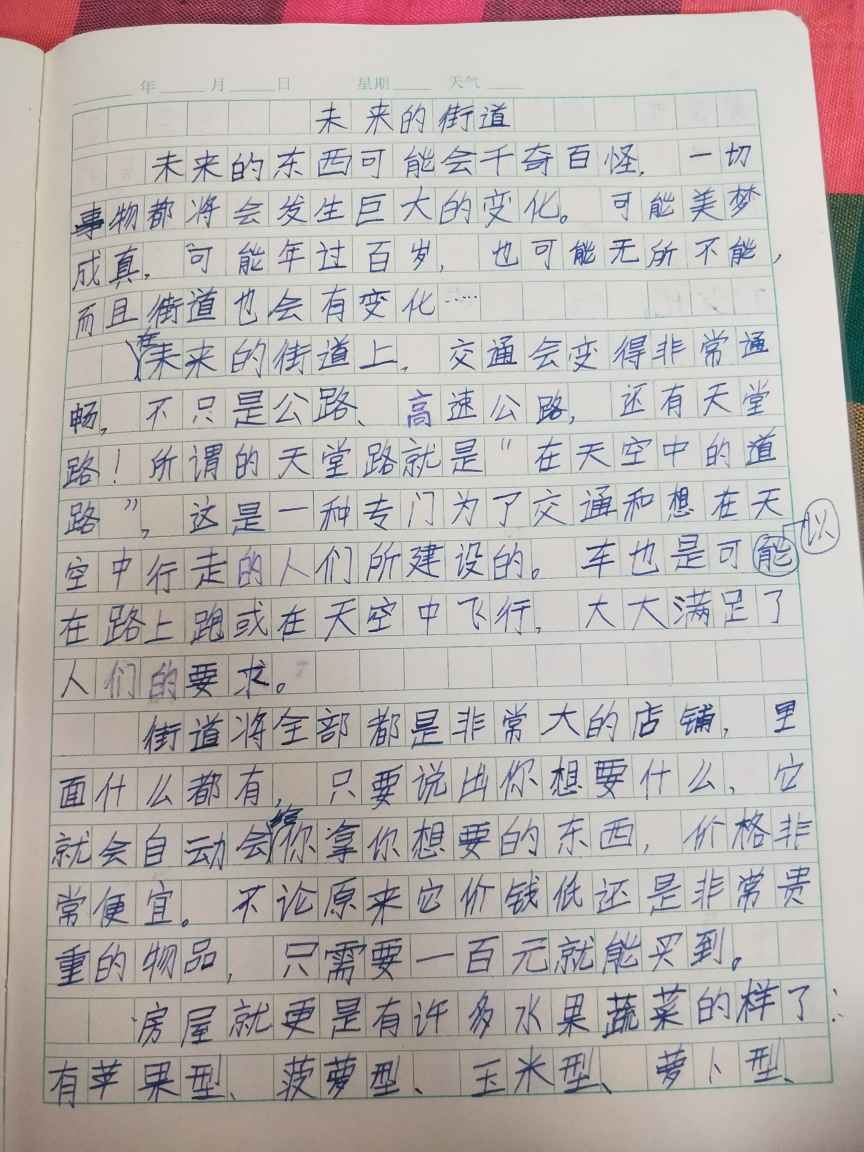 年 月 日 星期 天气
未来的街道
未来的东西可能会千奇百怪，一切
事物都将会发生巨大的变化。可能美梦
成真，可能年过百岁，也可能无所不能，
而且街道也会有变化……
在未来的街道上，交通会变得非常通
畅，不只是公路、高速公路，还有天堂
路！所谓的天堂路就是“在天空中的道
路”，这是一种专门为了交通和想在天
空中行走的人们所建设的。车也是可能以
在路上跑或在天空中飞行，大大满足了
人们的要求。
街道将全部都是非常大的店铺，里
面什么都有，只要说出你想要什么，它
就会自动会给你拿你想要的东西，价格非
常便宜。不论原来它价钱低还是非常贵
重的物品，只需要一百元就能买到。
房屋就更是有许多水果蔬菜的样了：
有苹果型、菠萝型、玉米型、萝卜型、